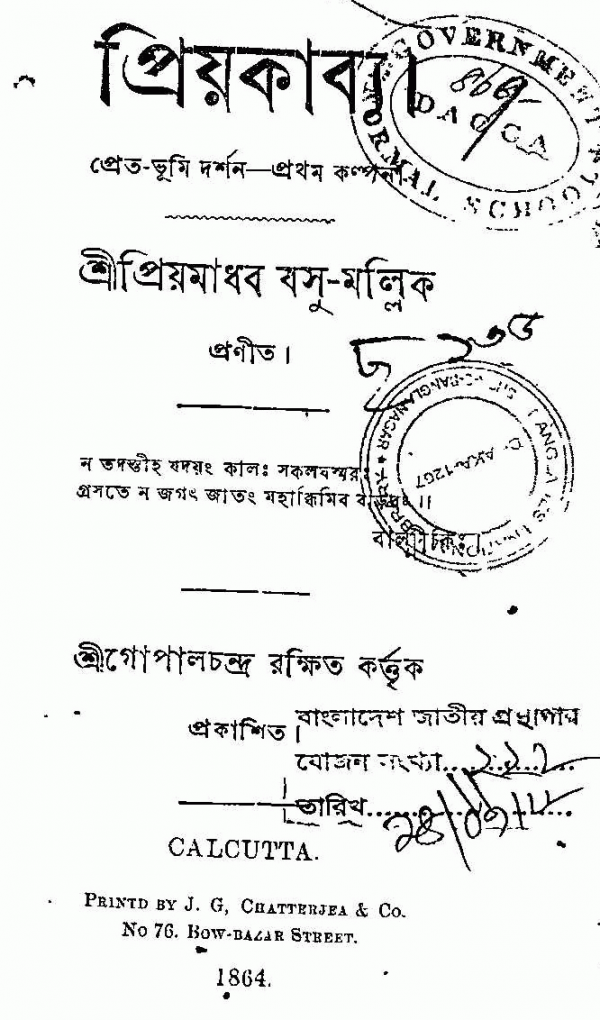 প্রিয়কাব্য।
GOVERNMENT
DACCA
NORMAL SCHOOL
প্রেত-ভূমি দর্শন—প্রথম কল্পনা।
শ্রীপ্রিয়মাধব বসু-মল্লিক
প্রণীত।
ন তদস্তীহ যদয়ং কালঃ সকলঘস্মরঃ
গ্রসতে ন জগৎ জাতং মহাব্ধিমিব বাড়বঃ॥
বাল্মীকিঃ।
শ্রীগোপালচন্দ্র রক্ষিত কর্ত্তৃক
প্রকাশিত।
বাংলাদেশ জাতীয় গ্রন্থাগার
যোজন সংখ্যা
তারিখ
CALCUTTA.
PRINTD BY J. G, CHATTERJEA & CO.
NO 76. BOW-BAZAR STREET.
1864.